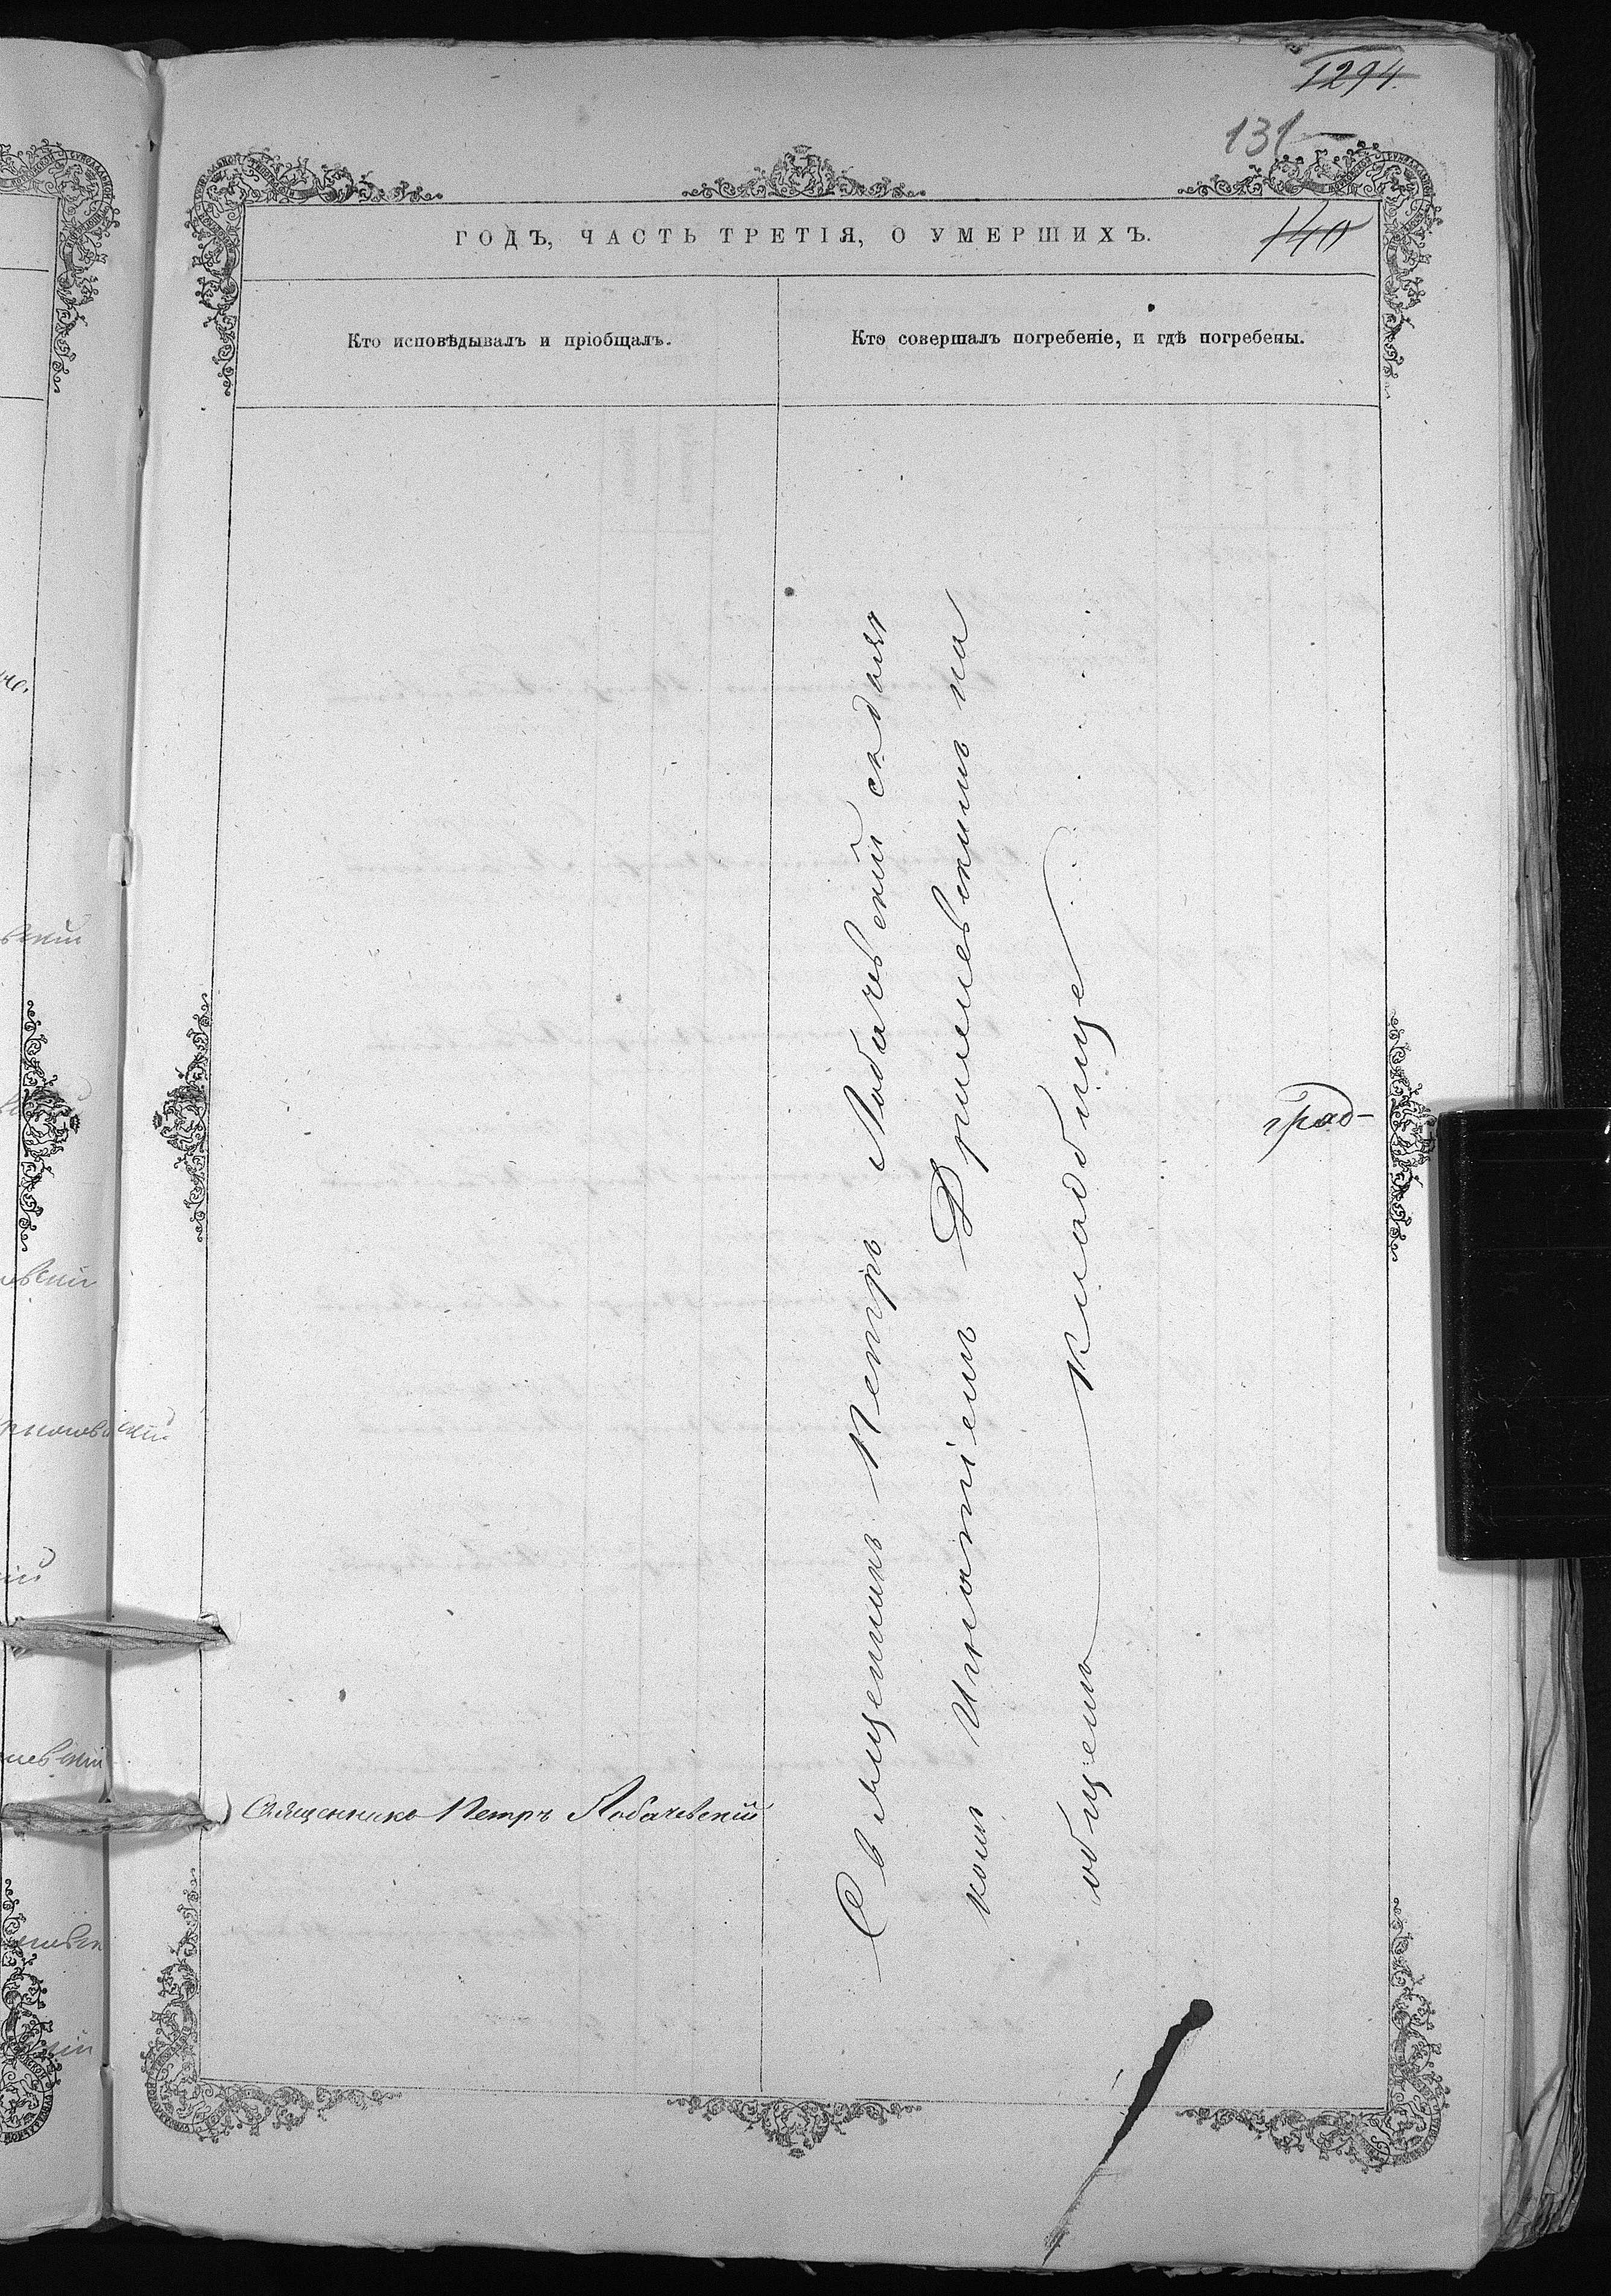 1294.
131
140
ГОДЪ, ЧАСТЬ ТРЕТІЯ, О УМЕРШИХЪ.
Кто исповѣдывалъ и пріобщалъ.
Кто совершалъ погребеніе, и гдѣ погребены.
Священникъ Петръ Лобачевскій
Священникъ Петръ Лобачевскій съ діач
комъ Игнатіемъ на
общемъ кладбище
град-